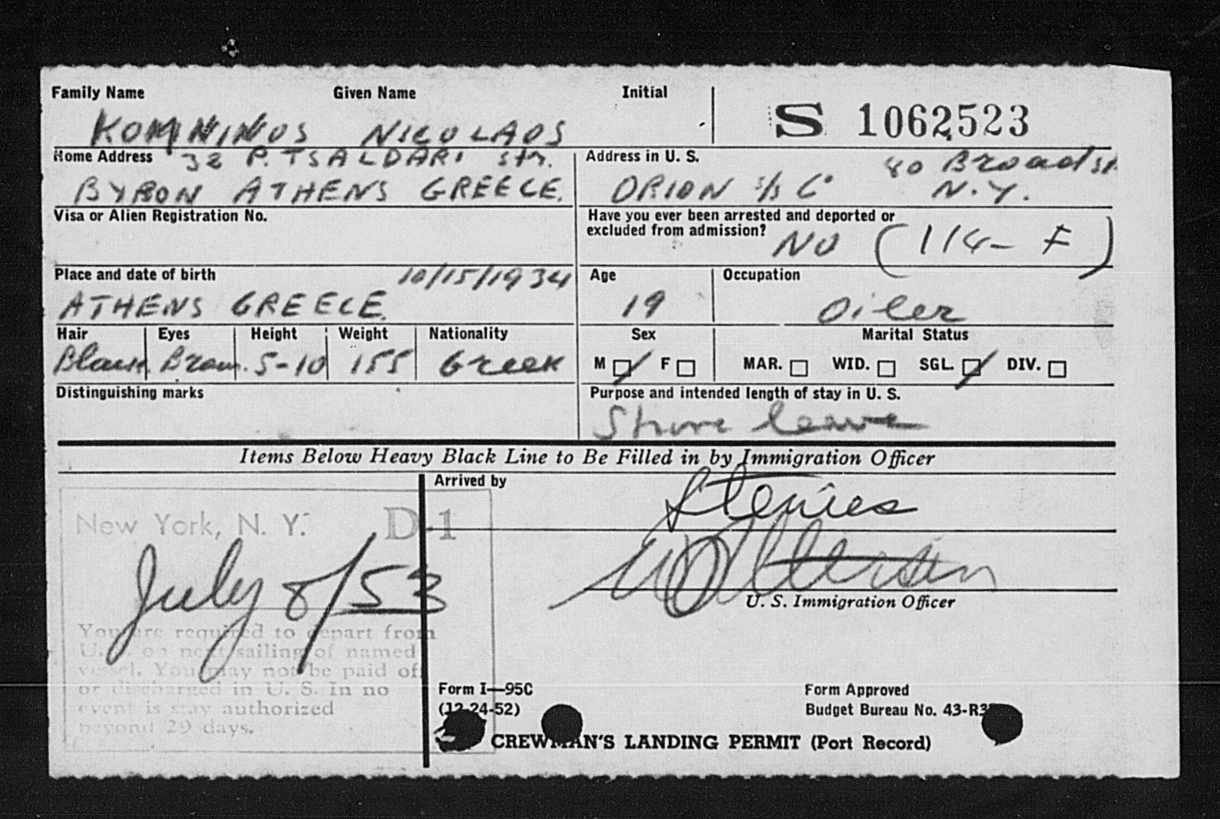 Family Name Given Name Initial
S 1062523
KOMNINOS NICOLAOS
Home Address 32 P. TSALDARI Str.
BYRON ATHENS GREECE.
Address in U. S. 80 Broad St.
ORION S/S Co N.Y.
Visa or Alien Registration No.
Have you ever been arrested and deported or
excluded from admission? NO (114- F)
Place and date of birth 10/15/1934
ATHENS GREECE.
Age Occupation
19 Oiler
Hair Eyes Height Weight Nationality
Black Brown. 5-10 155 Greek
Sex Marital Status
M F MAR. WID. SGL. DIV.
Distinguishing marks
Purpose and intended length of stay in U. S.
Shore leave
Items Below Heavy Black Line to Be Filled in by Immigration Officer
Arrived by
Stenies
U. S. Immigration Officer
New York, N. Y. D-1
July 8/53
You are required to depart from
U. S. on next sailing of named
vessel. You may not be paid off
or discharged in U. S. In no
event is stay authorized
beyond 29 days.
Form I—95C
(12-24-52)
Form Approved
Budget Bureau No. 43-R
CREWMAN'S LANDING PERMIT (Port Record)